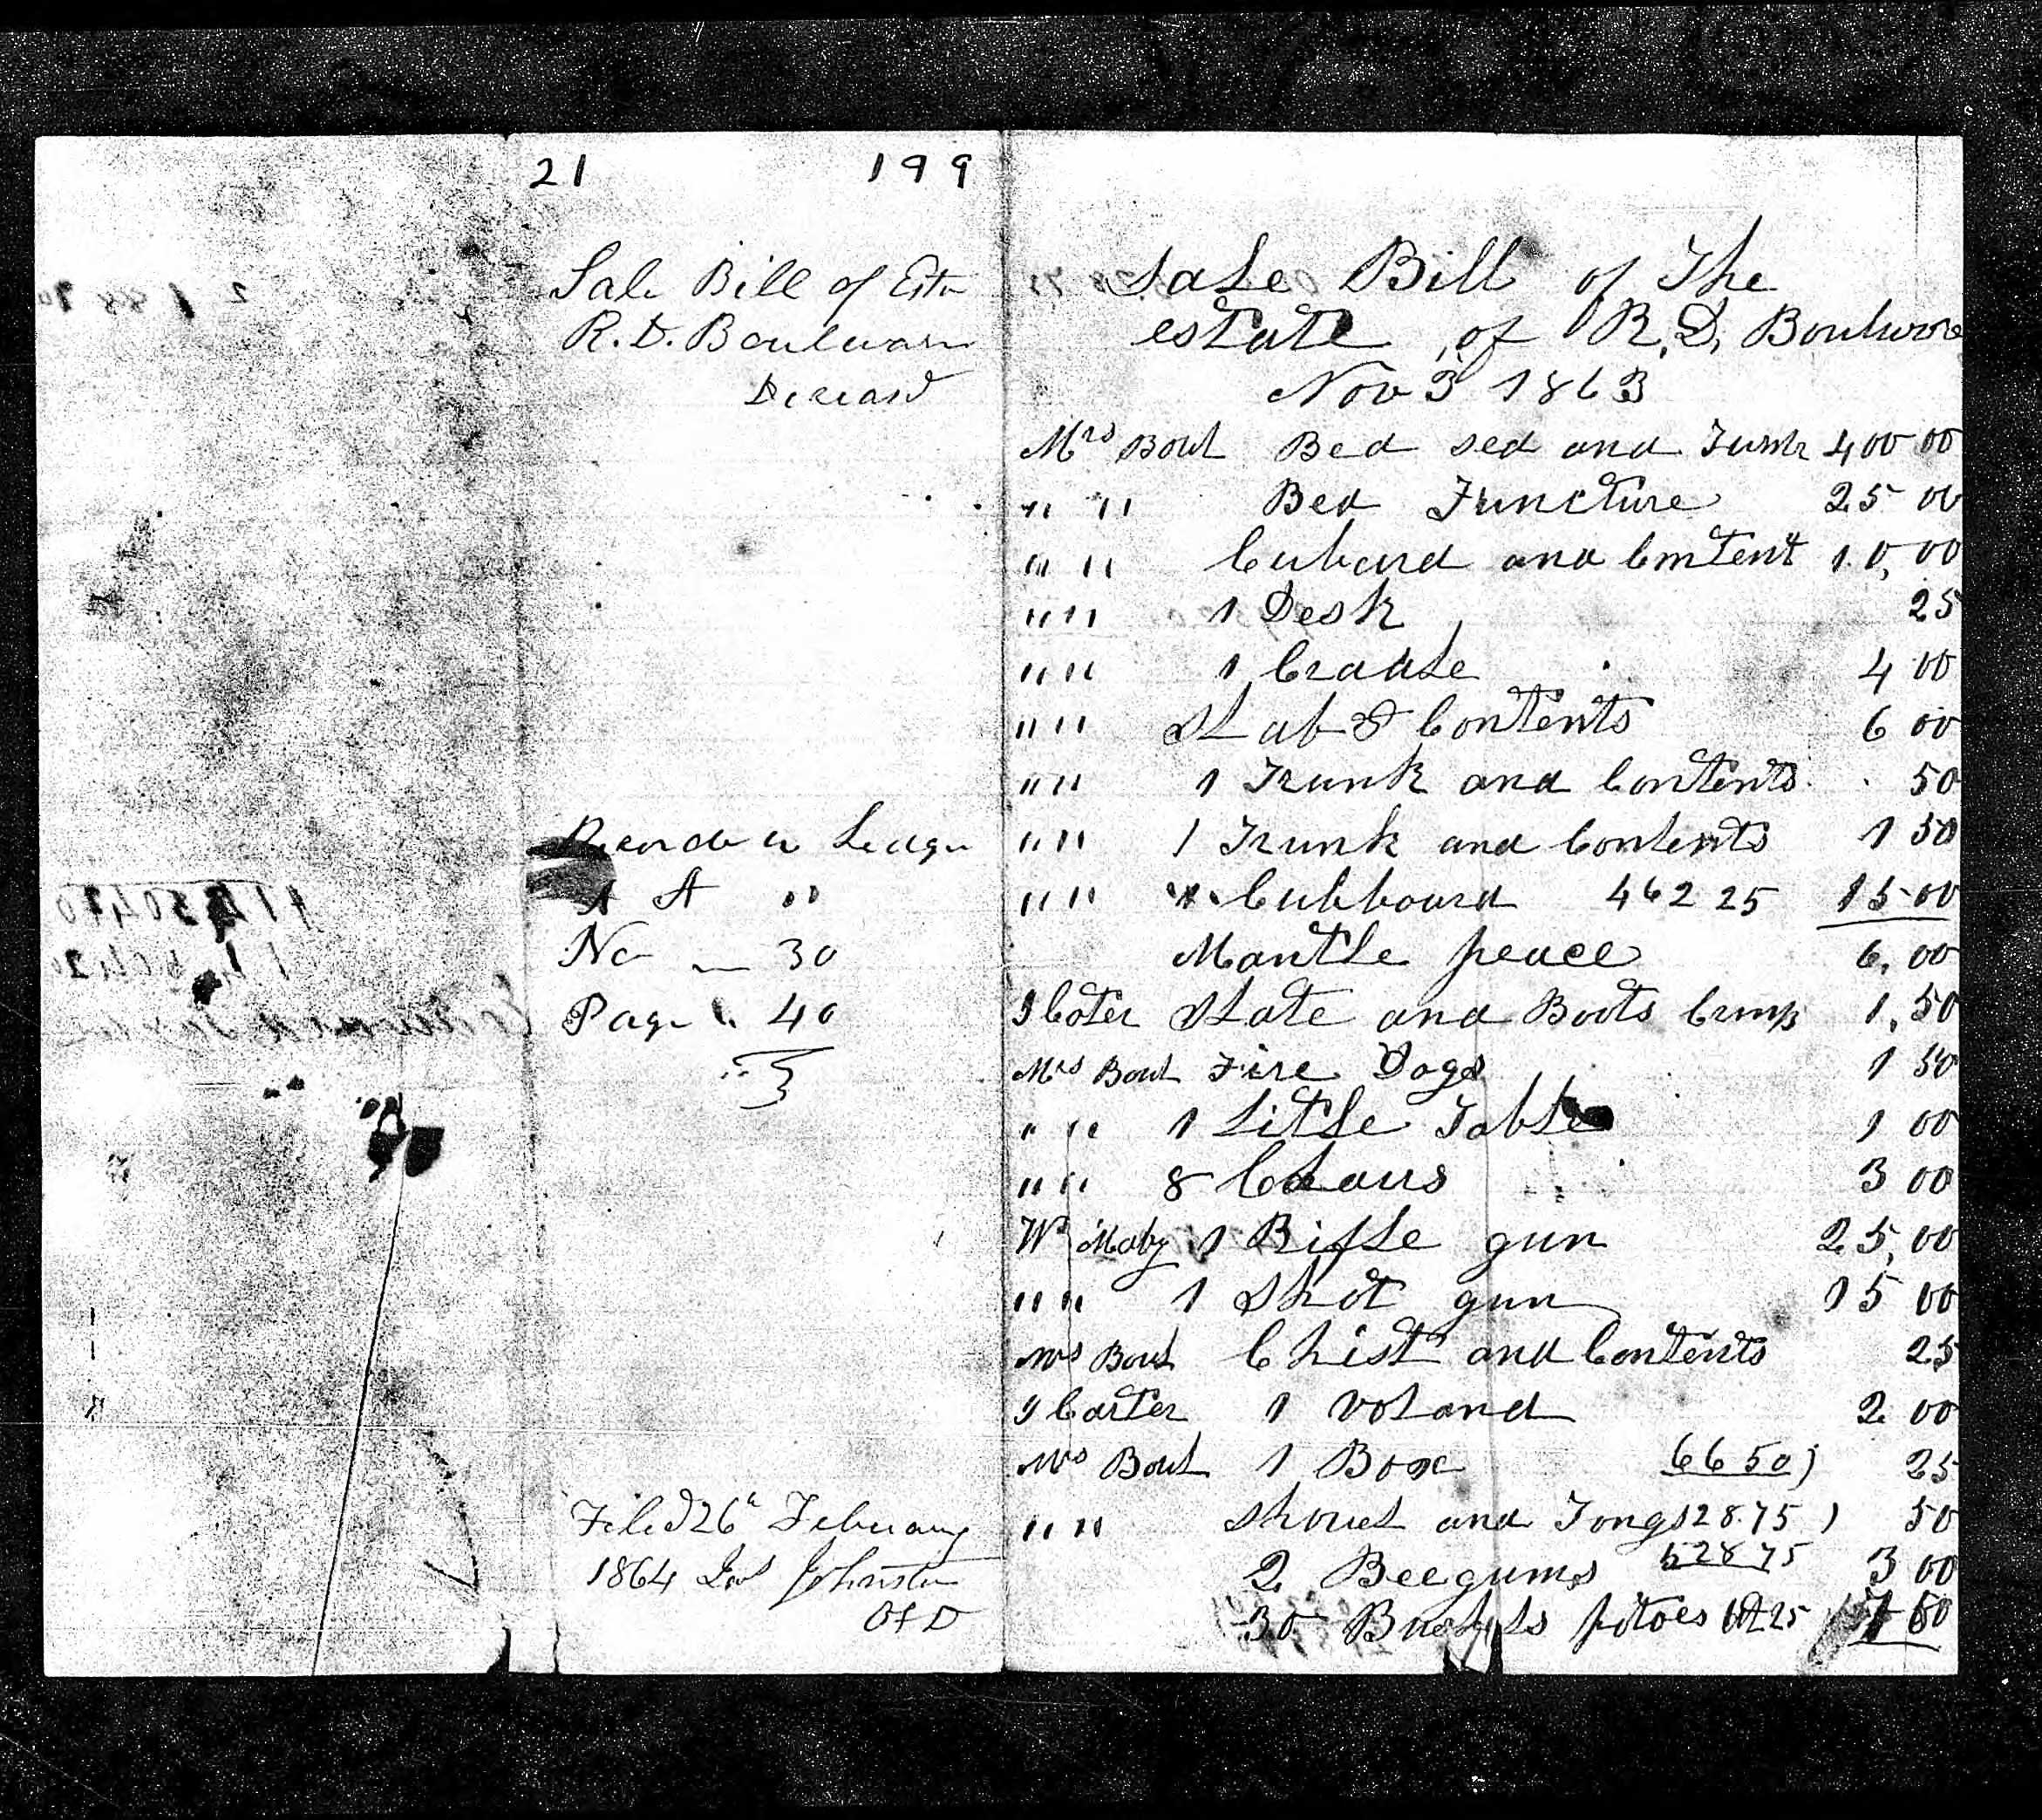 21 199
Sale Bill of Esta
R. D. Boulware
Deceasd
Recorde in Ledger
A A "
No — 30
Page " 40
Filed 26th February
1864 Johnston
O F D
Sale Bill of The
estate of R. D. Boulware
Nov 3 1863
Mrs Boul Bed sed and Furnr 400 00
" " Bed Functure 25 00
" " Cubard and Content 10,00
" " 1 Desk 25
" " 1 Cradle 4 00
" " Slab & Contents 6 00
" " 1 Trunk and Contents 50
" " 1 Trunk and Contents 1 50
" " Cubboard 462 25 15 00
Mantle peace 6,00
J Coter Slate and Boots Crimp 1,50
Mrs Boul Fire Dogs 1 50
" " 1 Litle Table 1 00
" " 8 Chairs 3 00
Wm Maby 1 Rifle gun 25,00
" " 1 Shot gun 15 00
Mrs Boul Chist and Contents 25
J Carter 1 2 00
Mrs Boul 1 Box 66 50) 25
" " Shovel and Tongs 128.75 ) 50
2 Beegums 528 75 3 00
30 Bushels pitoes 7 50